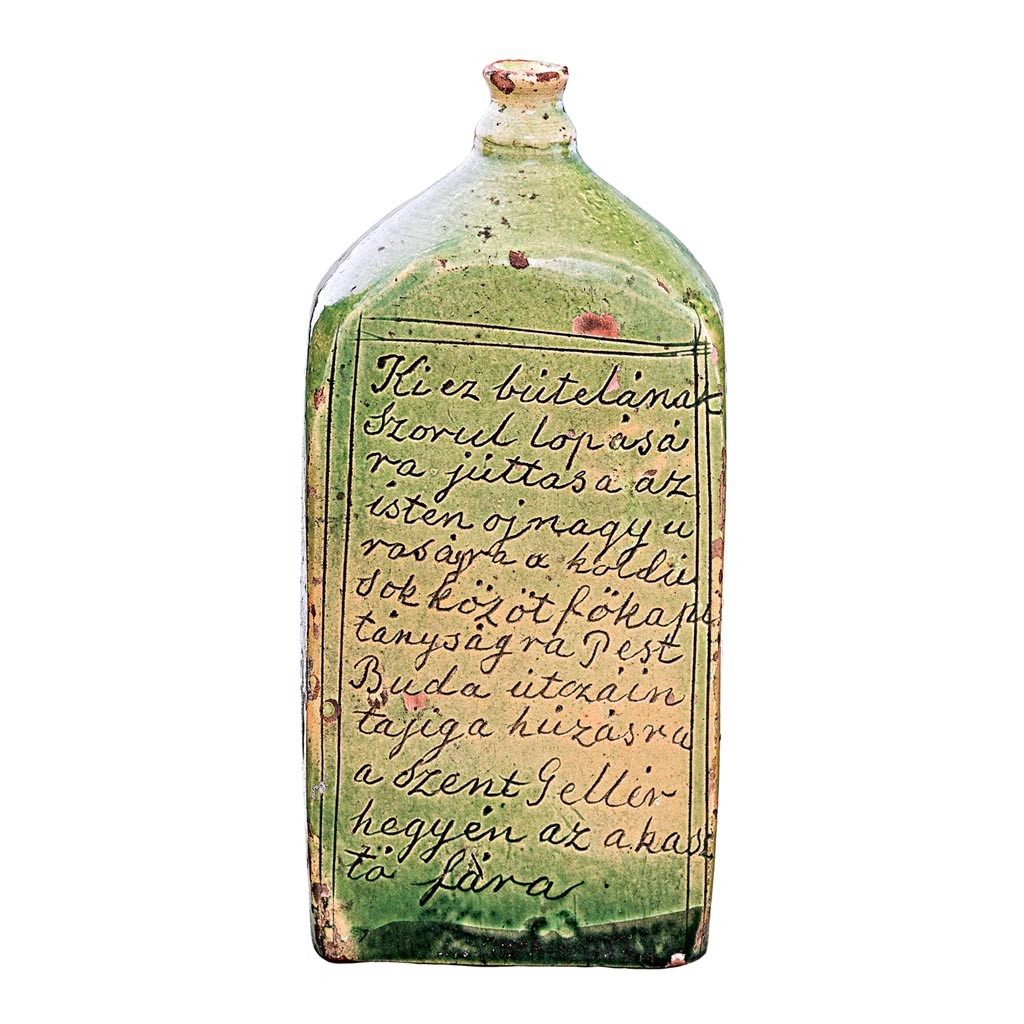 Ki ez bútelának
Szorul lopásá
ra júttasa áz
isten ojnagy u
raságra a koldú
sok között fökapi
tányságra Pest
Buda útczáin
tajiga húzásra
a szent Gellér
hegyén az akasz
tó fára